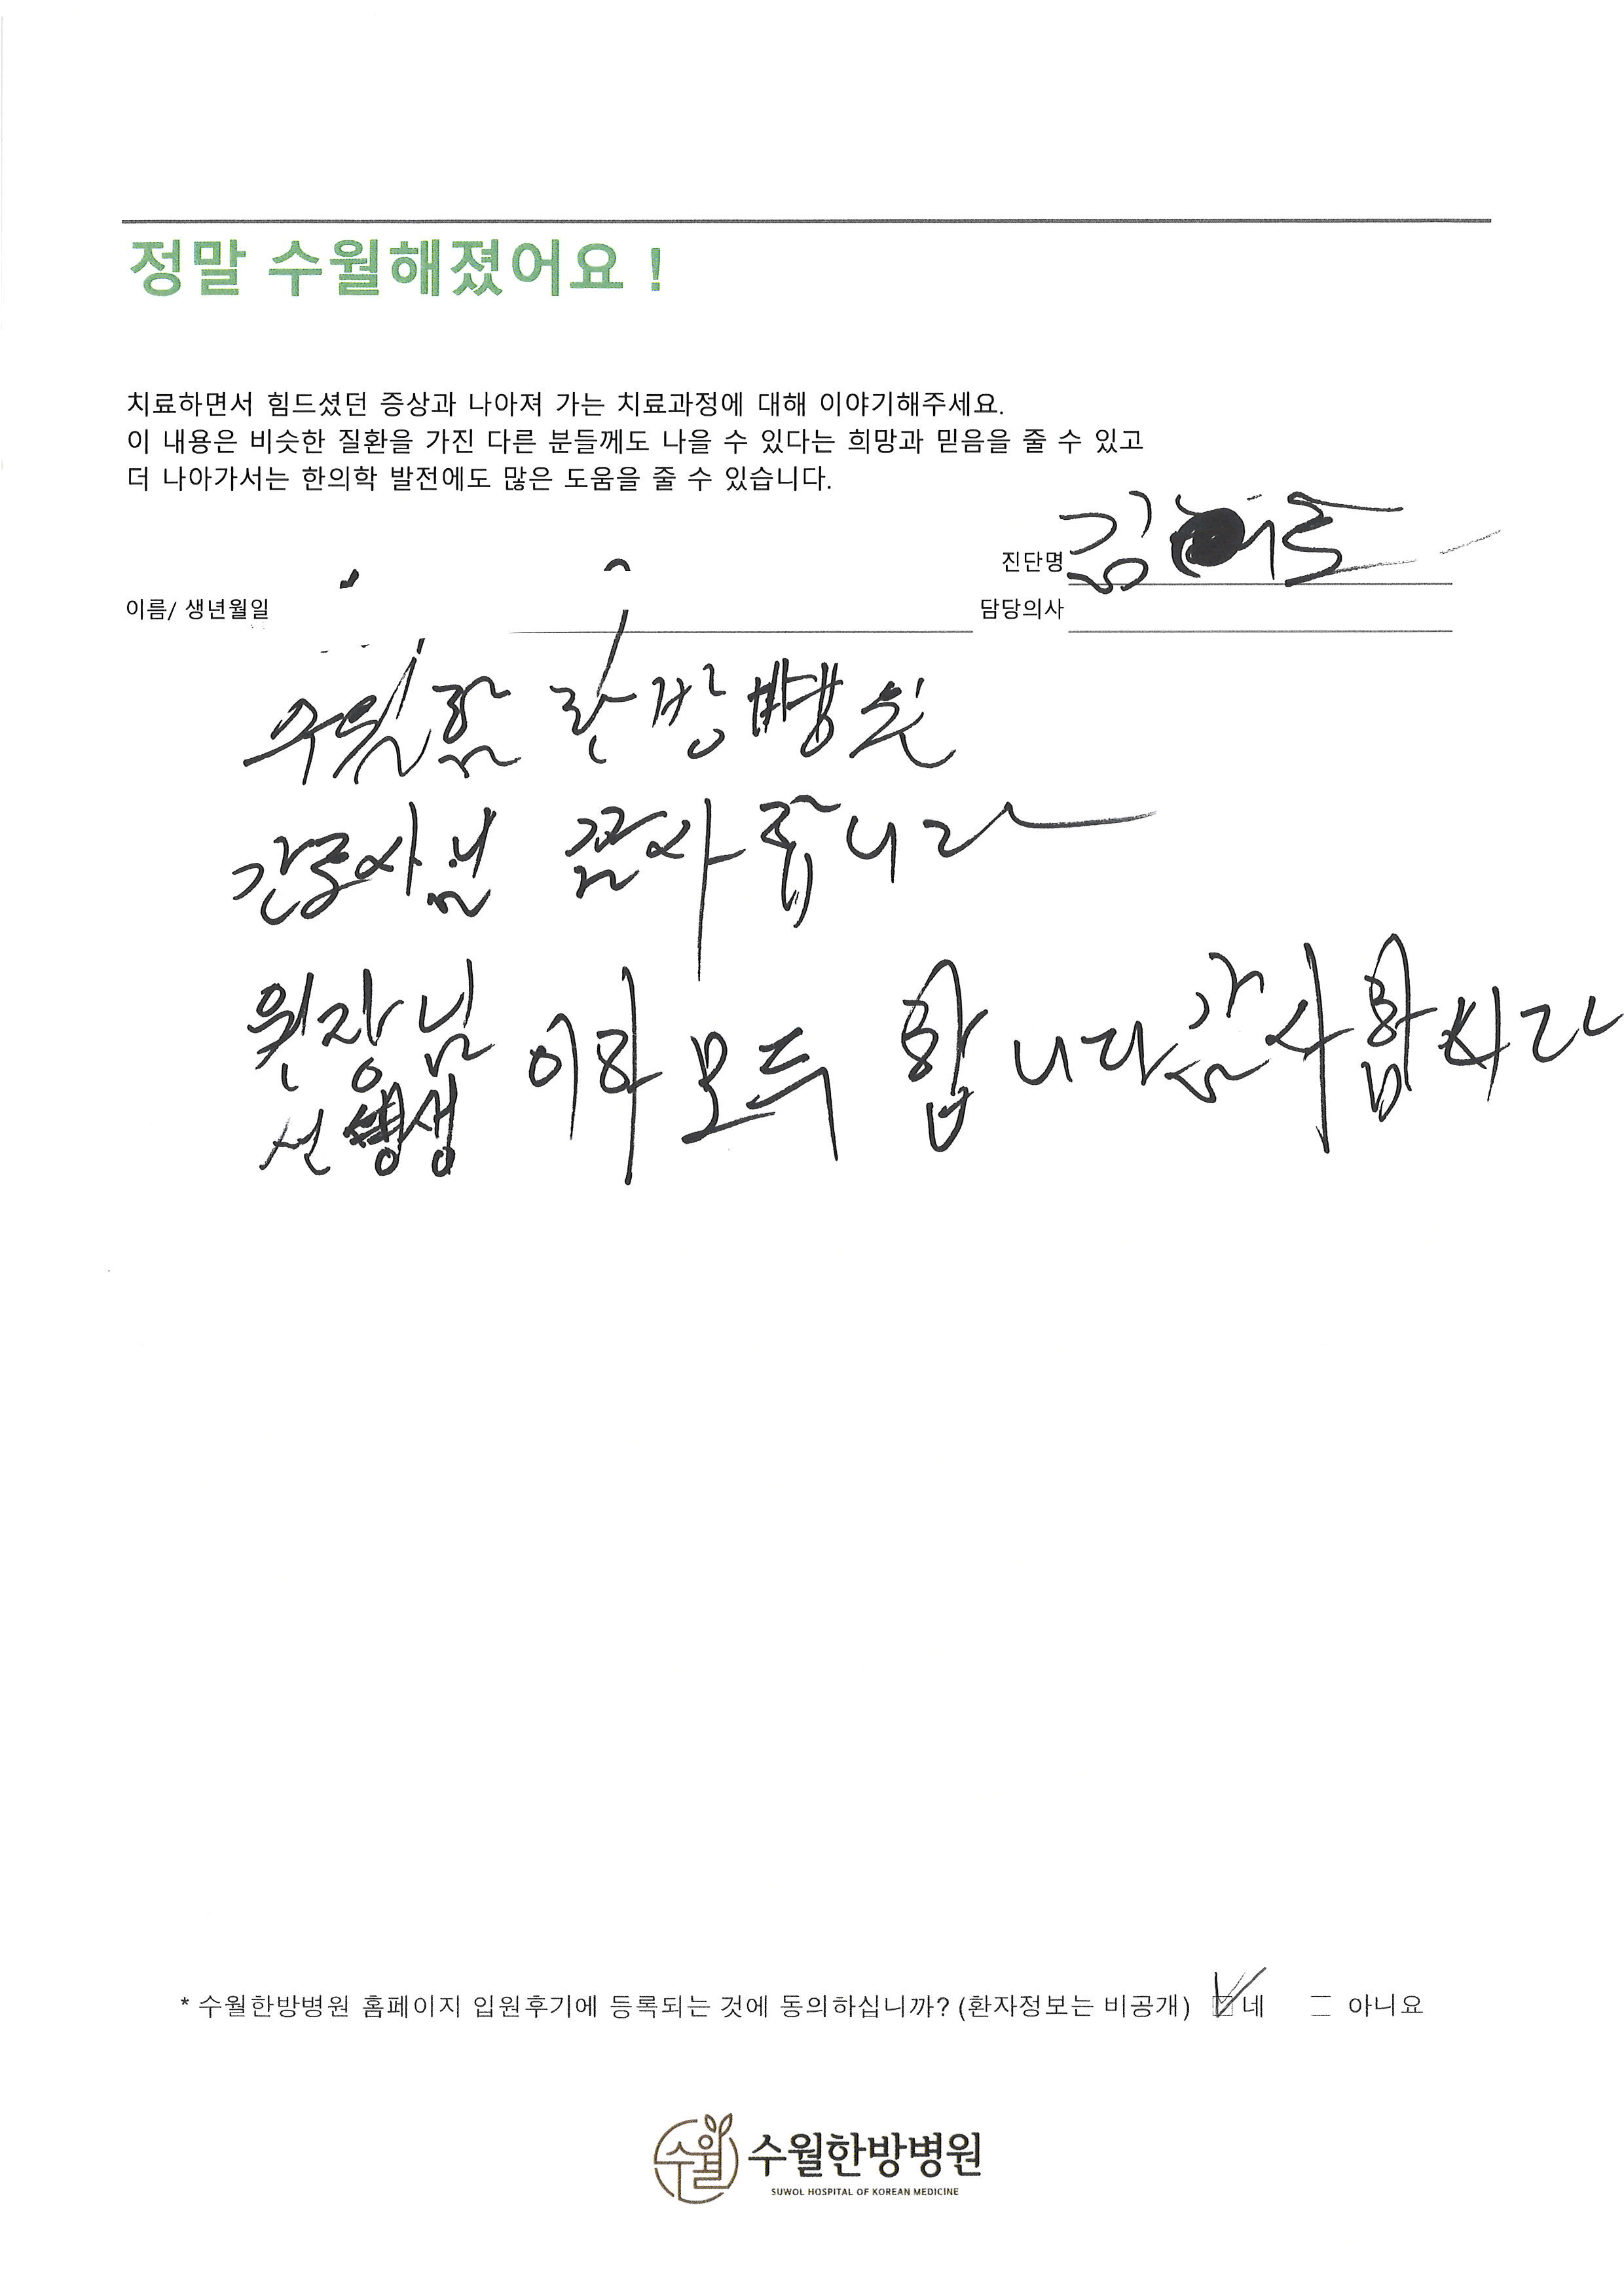 정말 수월해졌어요 !
치료하면서 힘드셨던 증상과 나아져 가는 치료과정에 대해 이야기해주세요.
이 내용은 비슷한 질환을 가진 다른 분들께도 나을 수 있다는 희망과 믿음을 줄 수 있고
더 나아가서는 한의학 발전에도 많은 도움을 줄 수 있습니다.
진단명 김
이름/ 생년월일 담당의사
수월 방병원
간호사님 감사합니다
원장님 이하 모두 합니다 감사합니다
선생
* 수월한방병원 홈페이지 입원후기에 등록되는 것에 동의하십니까? (환자정보는 비공개) 네 아니요
수월 수월한방병원
SUWOL HOSPITAL OF KOREAN MEDICINE